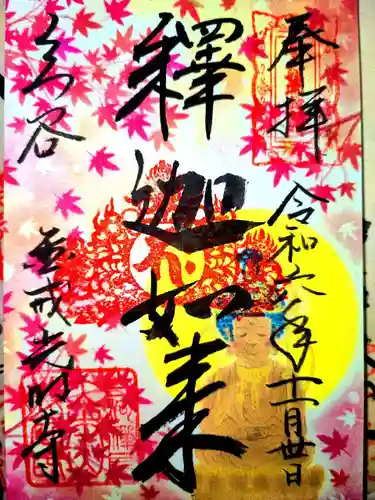 奉拝
令和六年十一月廿日
釋迦如来
くろ谷
金戒光明寺